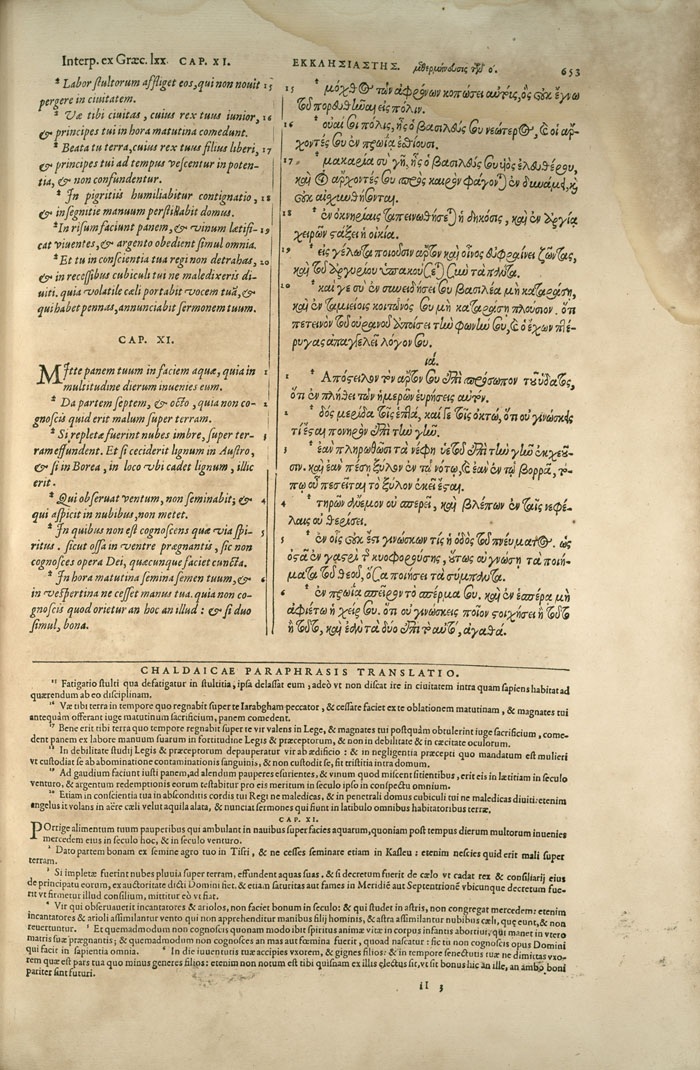 Interp. ex Græc. lxx. CAP. XI.
* Labor stultorum affliget eos, qui non nouit 15
pergere in ciuitatem.
* Væ tibi ciuitas, cuius rex tuus iunior, 16
& principes tui in hora matutina comedunt.
* Beata tu terra, cuius rex tuus filius liberi, 17
& principes tui ad tempus vescentur in poten-
tia, & non confundentur.
* In pigritiis humiliabitur contignatio, 18
& in segnitie manuum perstillabit domus.
* In risum faciunt panem, & vinum lætifi- 19
cat viuentes, & argento obedient simul omnia.
* Et tu in conscientia tua regi non detrahas, 20
& in recessibus cubiculi tui ne maledixeris di-
uiti. quia volatile cæli portabit vocem tuā, &
qui habet pennas, annunciabit sermonem tuum.
CAP. XI.
Mitte panem tuum in faciem aquæ, quia in 1
multitudine dierum inuenies eum.
* Da partem septem, & octo, quia non co- 2
gnoscis quid erit malum super terram.
* Si repletæ fuerint nubes imbre, super ter- 3
ram effundent. Et si ceciderit lignum in Austro,
& si in Borea, in loco vbi cadet lignum, illic
erit.
* Qui obseruat ventum, non seminabit; & 4
qui aspicit in nubibus, non metet.
* In quibus non est cognoscens quæ via spi- 5
ritus. sicut ossa in ventre prægnantis, sic non
cognosces opera Dei, quæcunque faciet cuncta.
* In hora matutina semina semen tuum, & 6
in vespertina ne cesset manus tua. quia non co-
gnoscis quod orietur an hoc an illud: & si duo
simul, bona.
ΕΚΚΛΗΣΙΑΣΤΗΣ. 653
15 * μόχθος τῶν ἀφρόνων κοπώσει αὐτούς, ὃς οὐκ ἔγνω
τοῦ πορευθῆναι εἰς πόλιν.
16 * οὐαί σοι πόλις, ἧς ὁ βασιλεύς σου νεώτερος, καὶ οἱ ἄρ-
χοντές σου ἐν πρωΐα ἐσθίουσι.
17 * μακαρία σὺ γῆ, ἧς ὁ βασιλεύς σου υἱὸς ἐλευθέρου,
καὶ οἱ ἄρχοντές σου πρὸς καιρὸν φάγονται ἐν δυνάμει, καὶ
οὐκ αἰσχυνθήσονται.
18 * ἐν ὀκνηρίαις ταπεινωθήσεται ἡ δόκωσις, καὶ ἐν ἀργία
χειρῶν στάξει ἡ οἰκία.
19 * εἰς γέλωτα ποιοῦσιν ἄρτον καὶ οἶνος εὐφραίνει ζῶντας,
καὶ τοῦ ἀργυρίου ὑπακούσεται σὺν τὰ πάντα.
20 * καί γε σὺ ἐν συνειδήσει σου βασιλέα μὴ καταράση,
καὶ ἐν ταμιείοις κοιτῶνός σου μὴ καταράση πλούσιον. ὅτι
πετεινὸν τοῦ οὐρανοῦ ἀποίσει τὴν φωνήν σου, καὶ ὁ ἔχων πτέ-
ρυγας ἀπαγγελεῖ λόγον σου.
ια.
1 Ἀπόστειλον τὸν ἄρτον σου ἐπὶ πρόσωπον τοῦ ὕδατος,
ὅτι ἐν πλήθει τῶν ἡμερῶν εὑρήσεις αὐτόν.
2 * δὸς μερίδα τοῖς ἑπτά, καί γε τοῖς ὀκτώ, ὅτι οὐ γινώσκεις
τί ἔσται πονηρὸν ἐπὶ τὴν γῆν.
3 * ἐὰν πληρωθῶσι τὰ νέφη ὑετοῦ ἐπὶ τὴν γῆν ἐκχέου-
σιν. καὶ ἐὰν πέση ξύλον ἐν τῷ νότῳ, καὶ ἐὰν ἐν τῷ βορρᾷ, τό-
πῳ οὗ πεσεῖται τὸ ξύλον ἐκεῖ ἔσται.
4 * τηρῶν ἄνεμον οὐ σπερεῖ, καὶ βλέπων ἐν ταῖς νεφέ-
λαις οὐ θερίσει.
5 * ἐν οἷς οὐκ ἔστι γινώσκων τίς ἡ ὁδὸς τοῦ πνεύματος. ὡς
ὀστᾶ ἐν γαστρὶ τῆς κυοφορούσης, οὕτως οὐ γνώση τὰ ποιή-
ματα τοῦ θεοῦ, ὅσα ποιήσει τὰ σύμπαντα.
6 * ἐν πρωΐα σπεῖρον τὸ σπέρμα σου. καὶ ἐν ἑσπέρα μὴ
ἀφιέτω ἡ χείρ σου. ὅτι οὐ γινώσκεις ποῖον στοιχήσει ἢ τοῦτο
ἢ τοῦτο, καὶ ἐὰν τὰ δύο ἐπὶ τὸ αὐτό, ἀγαθά.
CHALDAICAE PARAPHRASIS TRANSLATIO.
15 Fatigatio stulti qua defatigatur in stultitia, ipsa delassat eum, adeò vt non discat ire in ciuitatem intra quam sapiens habitat ad
quærendum ab eo disciplinam.
16 Væ tibi terra in tempore quo regnabit super te Iarabgham peccator, & cessare faciet ex te oblationem matutinam, & magnates tui
antequam offerant iuge matutinum sacrificium, panem comedent.
17 Bene erit tibi terra quo tempore regnabit super te vir valens in Lege, & magnates tui postquàm obtulerint iuge sacrificium, come-
dent panem ex labore manuum suarum in fortitudine Legis & præceptorum, & non in debilitate & in cæcitate oculorum.
18 In debilitate studij Legis & præceptorum depauperatur vir ab ædificio: & in negligentia præcepti quo mandatum est mulieri
vt custodiat se ab abominatione contaminationis sanguinis, & non custodit se, fit tristitia intra domum.
19 Ad gaudium faciunt iusti panem, ad alendum pauperes esurientes, & vinum quod miscent sitientibus, erit eis in lætitiam in seculo
venturo, & argentum redemptionis eorum testabitur pro eis meritum in seculo ipso in conspectu omnium.
20 Etiam in conscientia tua in absconditis cordis tui Regi ne maledicas, & in penetrali domus cubiculi tui ne maledicas diuiti: etenim
angelus it volans in aëre cæli velut aquila alata, & nunciat sermones qui fiunt in latibulo omnibus habitatoribus terræ.
CAP. XI.
POrtige alimentum tuum pauperibus qui ambulant in nauibus super facies aquarum, quoniam post tempus dierum multorum inuenies
mercedem eius in seculo hoc, & in seculo venturo.
2 Dato partem bonam ex semine agro tuo in Tisri, & ne cesses seminare etiam in Kasleu: etenim nescies quid erit mali super
terram.
3 Si impletæ fuerint nubes pluuia super terram, effundent aquas suas. & si decretum fuerit de cælo vt cadat rex & consiliarij eius
de principatu eorum, ex auctoritate dicti Domini fiet. & etiam saturitas aut fames in Meridiē aut Septentrionē vbicunque decretum fue-
rit vt firmetur illud consilium, mittitur eò vt fiat.
4 Vir qui obseruauerit incantatores & ariolos, non faciet bonum in seculo: & qui studet in astris, non congregat mercedem: etenim
incantatores & arioli assimilantur vento qui non apprehenditur manibus filij hominis, & astra assimilantur nubibus cæli, quæ eunt, & non
reuertuntur. 5 Et quemadmodum non cognoscis quonam modo ibit spiritus animæ vitæ in corpus infantis abortiui, qui manet in vtero
matris suæ prægnantis; & quemadmodum non cognosces an mas aut fœmina fuerit, quoad nascatur: sic tu non cognoscis opus Domini
qui facit in sapientia omnia. 6 In die iuuentutis tuæ accipies vxorem, & gignes filios: & in tempore senectutis tuæ ne dimittas vxo-
rem quæ est pars tua quo minus generes filios: etenim non notum est tibi quisnam ex illis electus sit, vt sit bonus hic an ille, an ambo boni
pariter sint futuri.
iI 3